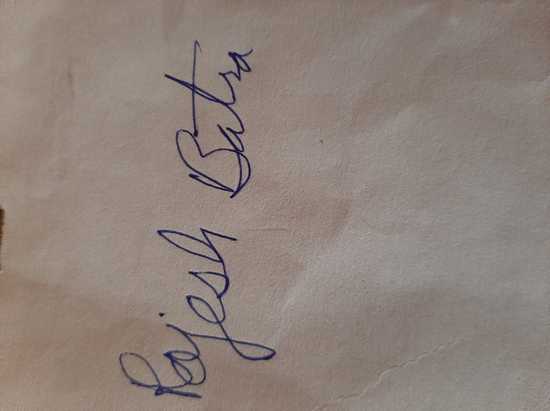 Rajesh Batra